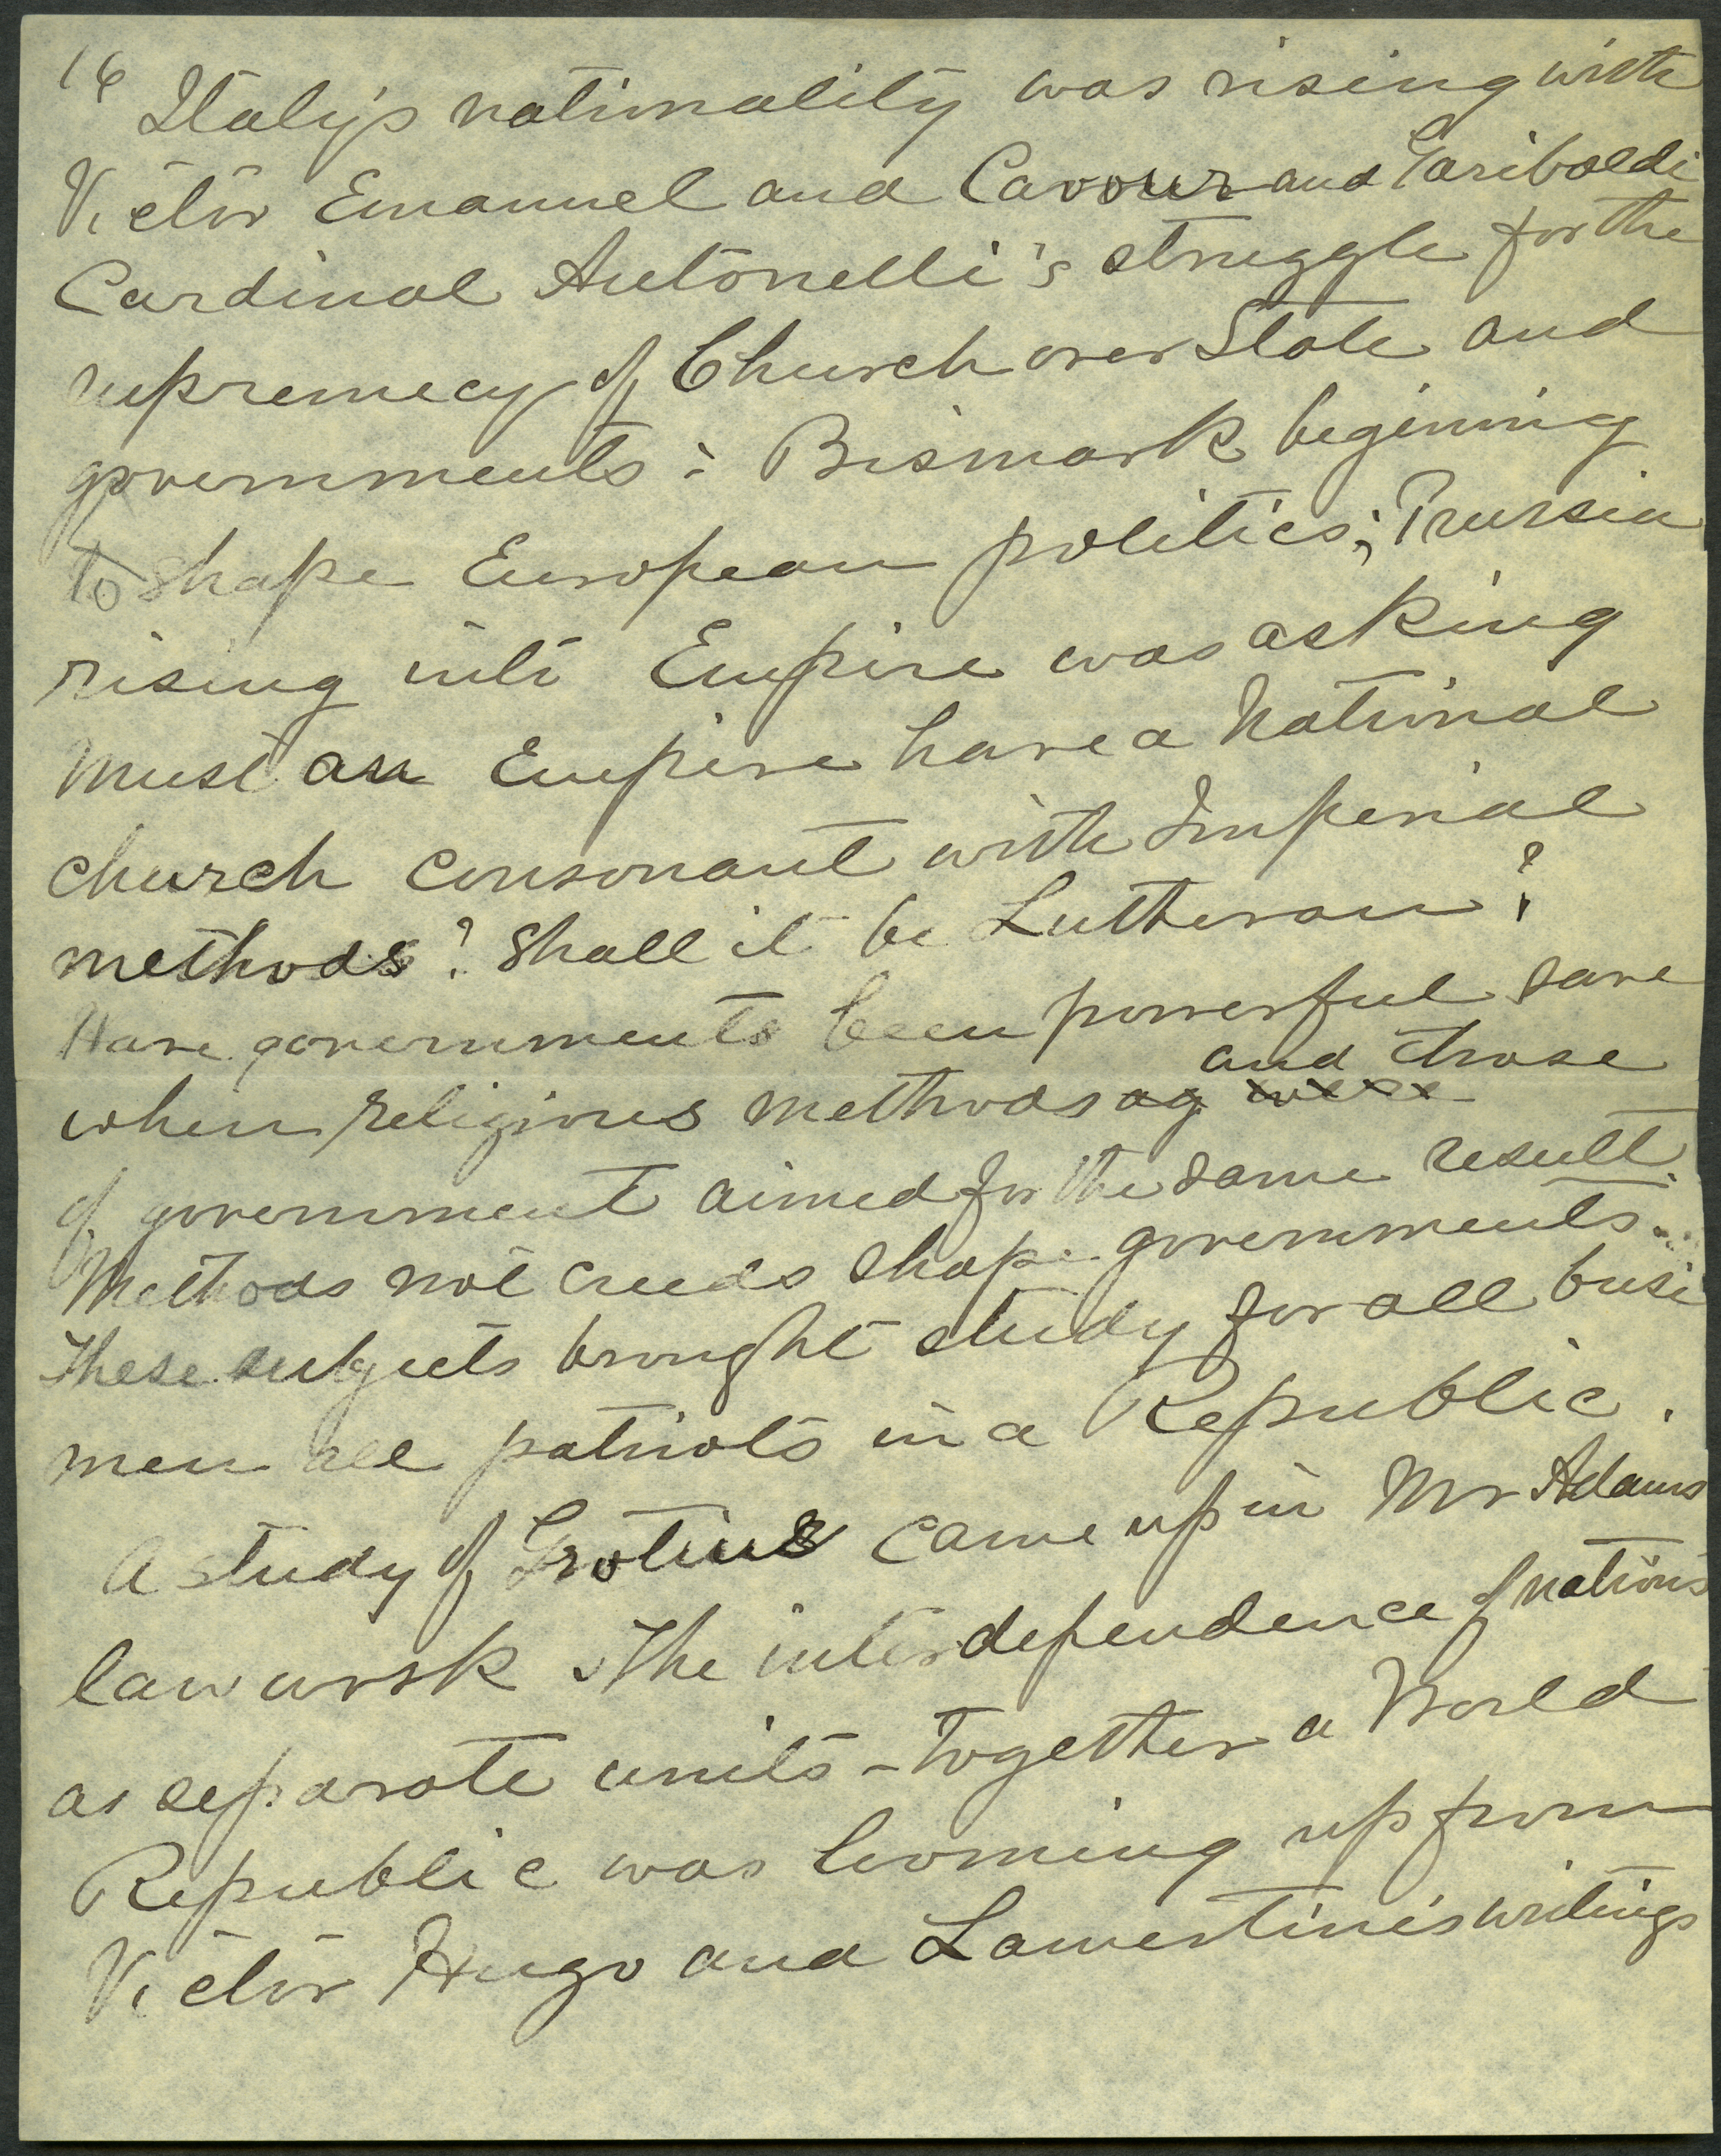 16
Italy's nationality was rising with
Victor Emanuel and Cavour and Garibaldi
Cardinal Antonelli's struggle for the
supremecy of Church over State and
governments: Bismark beginning
to shape European politics; Prussia
rising into Empire was asking
must an Empire have a National
church consonant with Imperial
methods? Shall it be Lutheran?
Have governments been powerful save
and those
when religious methods ag were
of government aimed for the same result.
Methods not creeds shape governments.
These subjects brought study for all busi
men all patriots in a Republic.
A study of Grotius came up in Mr Adams
law work. The interdependence of nations
as separate units - together a World
Republic was looming up from
Victor Hugo and Lamertine's writings